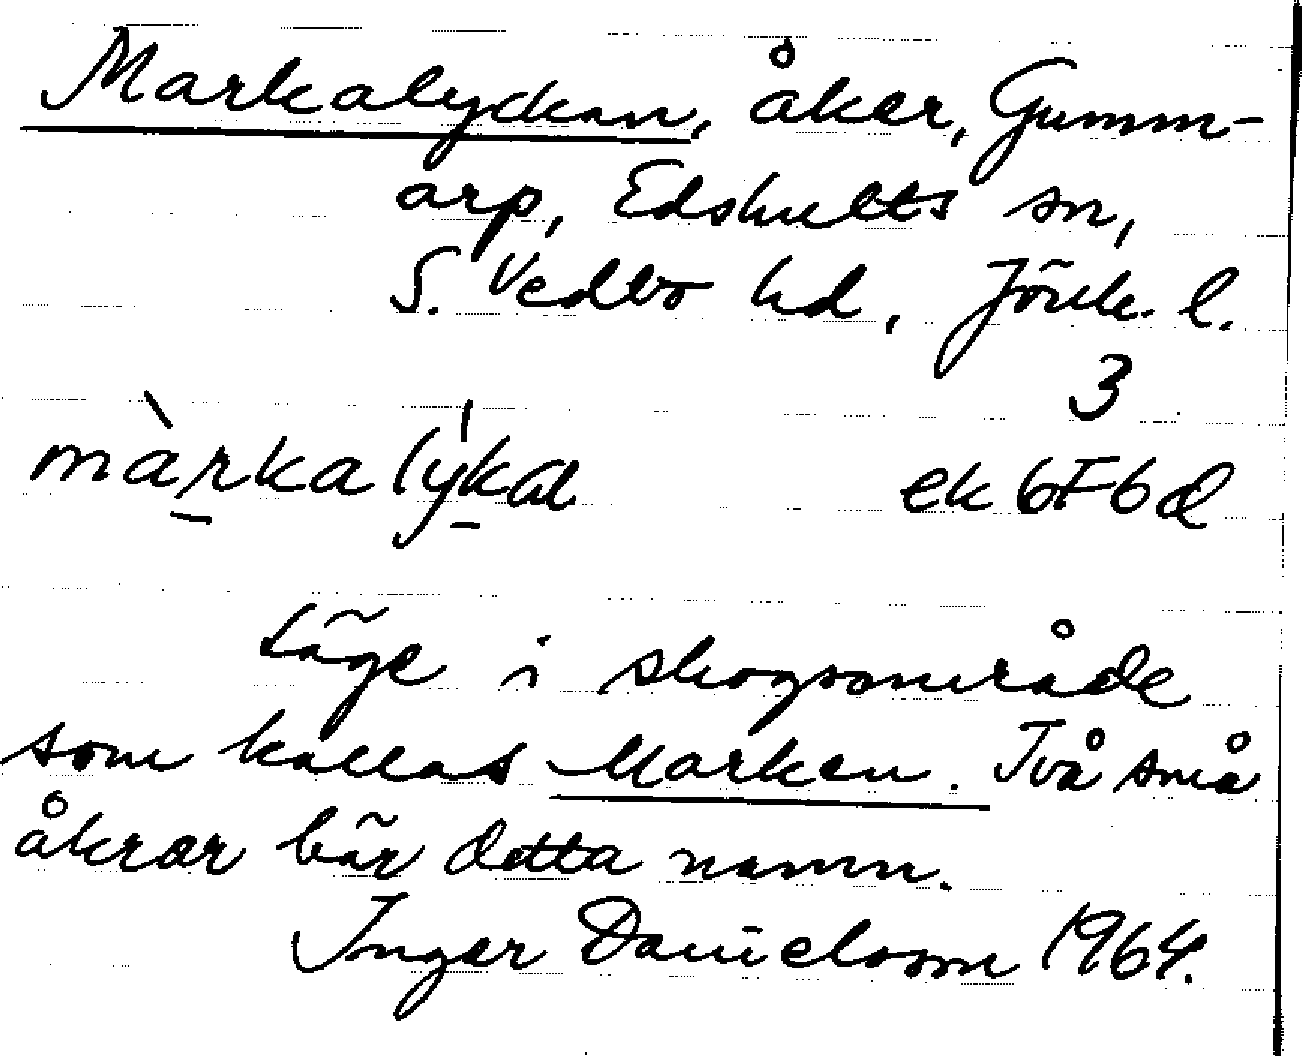 Markalyckan, åker, Gumm-
arp, Edshults sn,
S. Vedbo hd, Jönk. l.
3
màrkalýkal ek 6F6d
Läge i skogsområde
som kallas Marken. Två små
åkrar bär detta namn.
Inger Danielsson 1964.